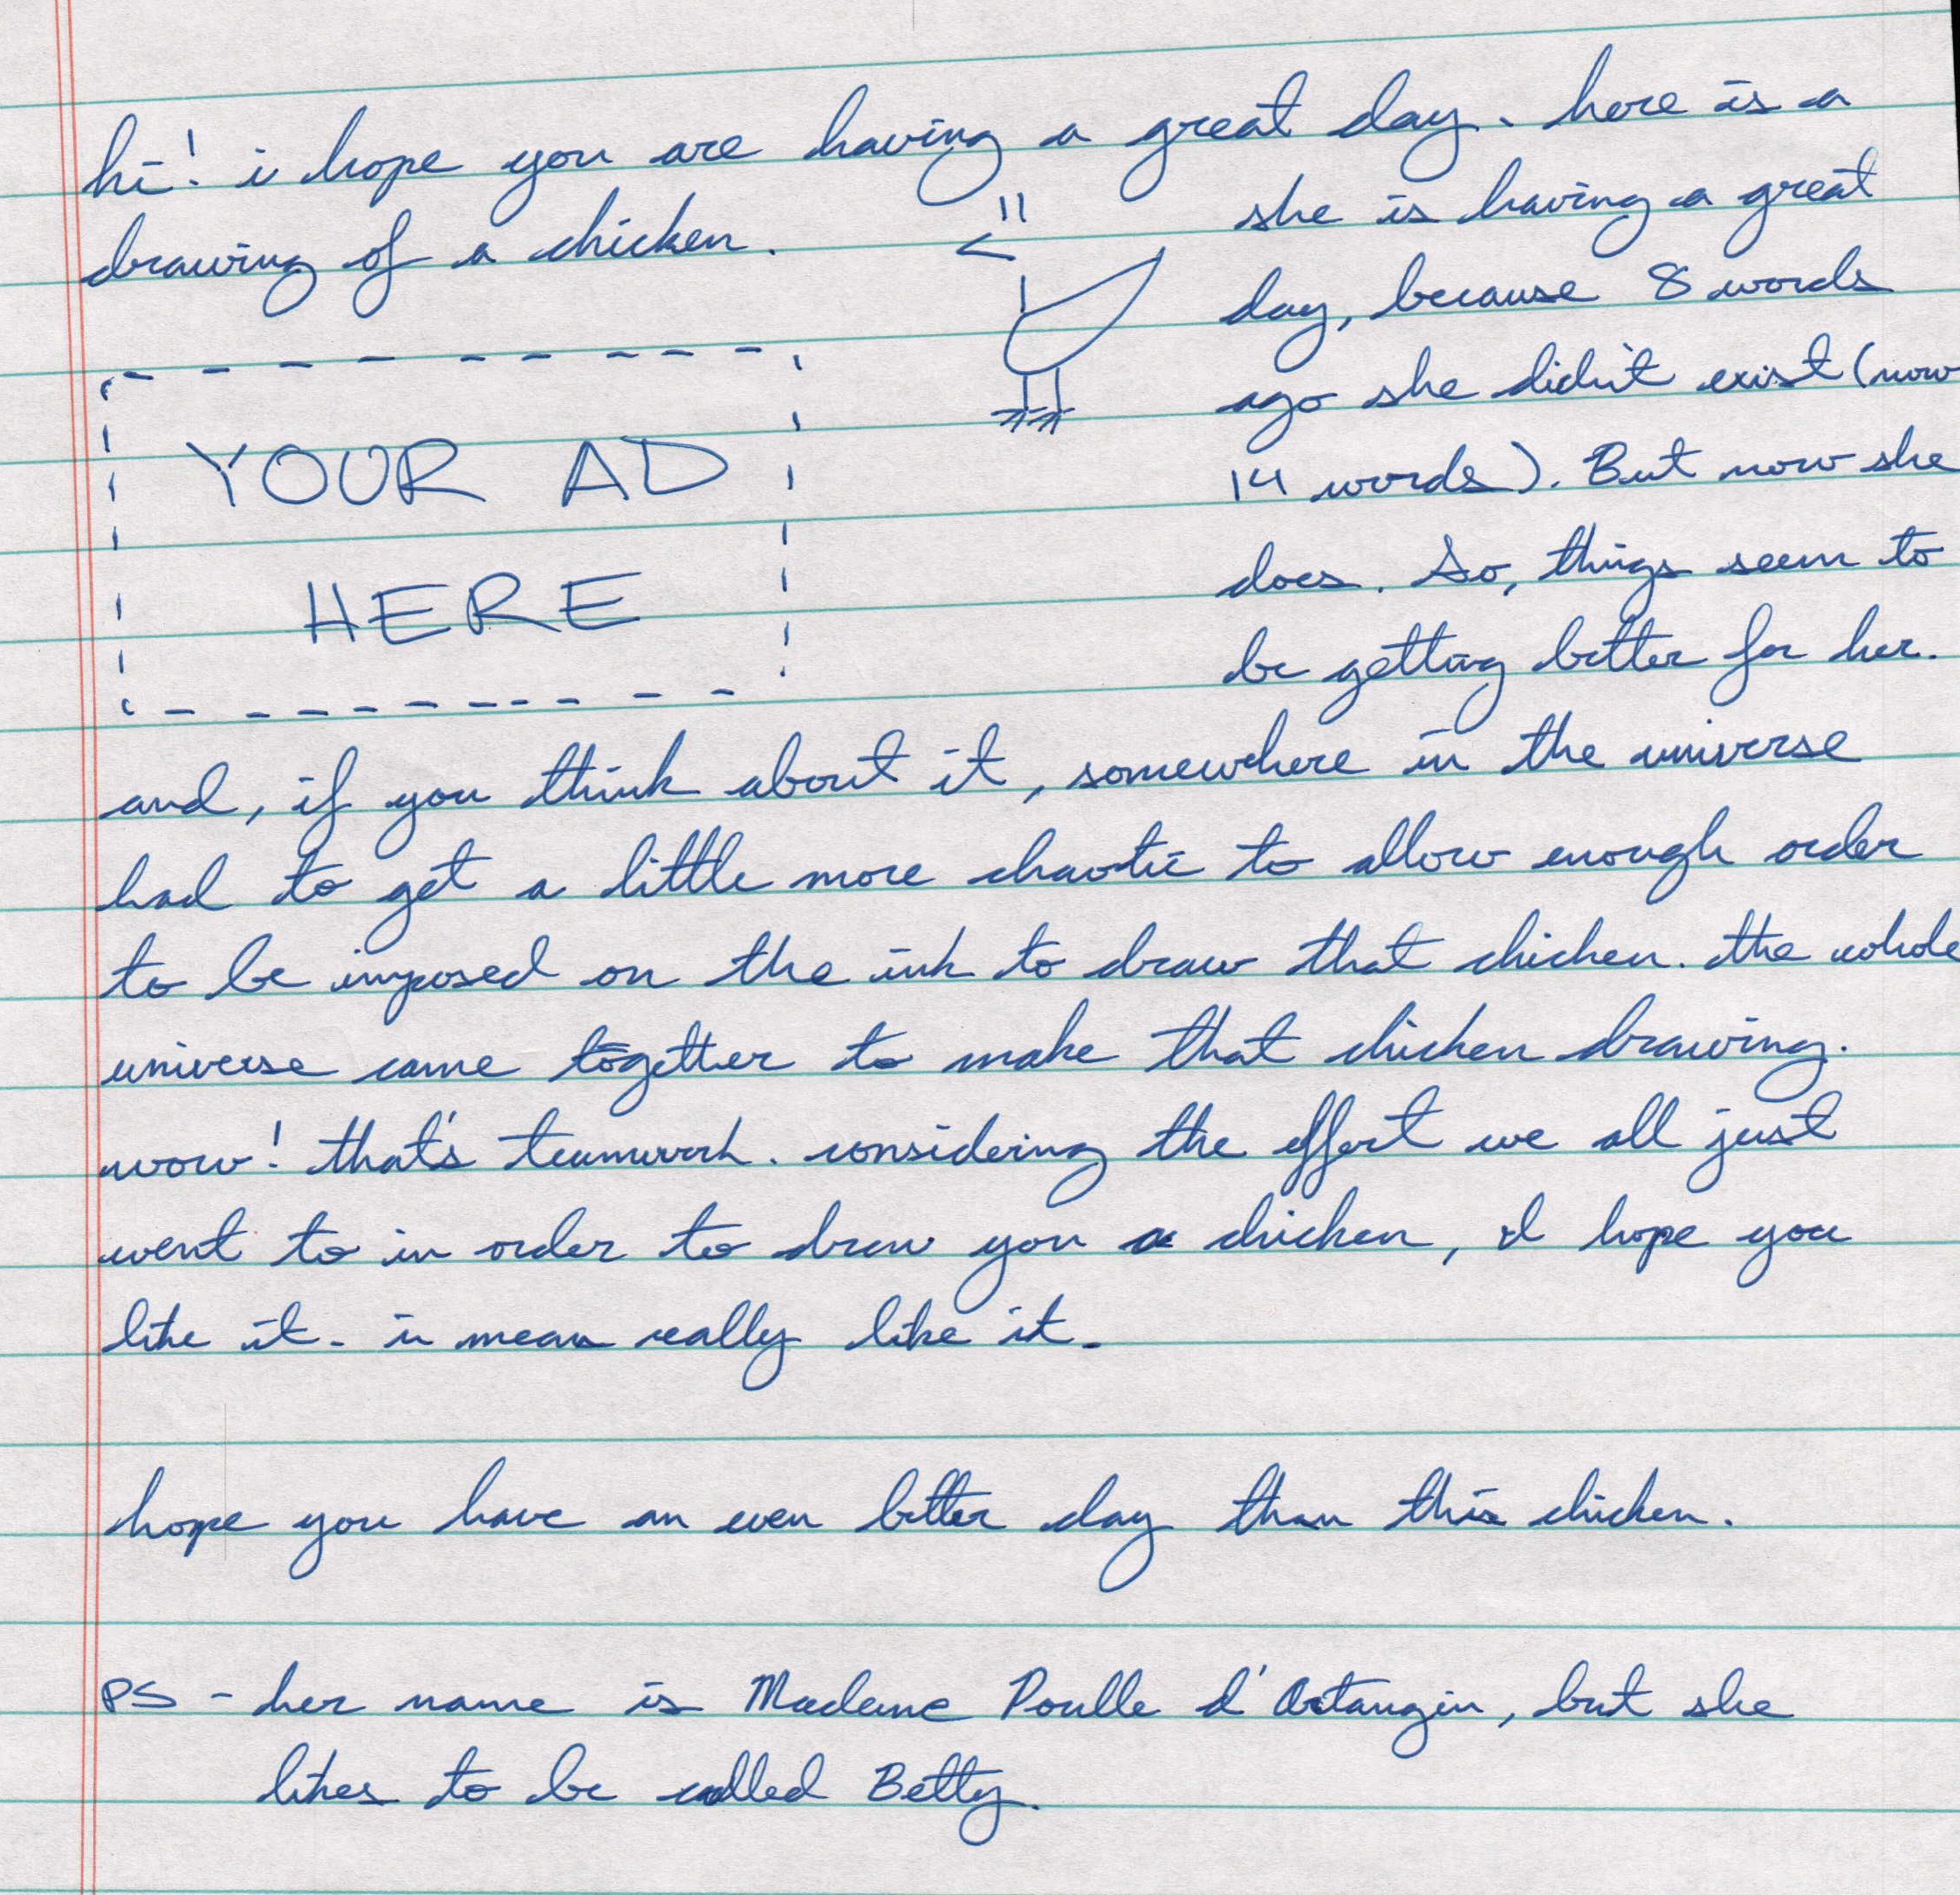 hi! i hope you are having a great day. here is a
drawing of a chicken.
she is having a great
day, because 8 words
ago she didn't exist (now
14 words). But now she
does. So, things seem to
be getting better for her.
YOUR AD
HERE
and, if you think about it, somewhere in the universe
had to get a little more chaotic to allow enough order
to be imposed on the ink to draw that chicken. the whole
universe came together to make that chicken drawing.
wow! that's teamwork. considering the effort we all just
went to in order to draw you a chicken, I hope you
like it. i mean really like it.
hope you have an even better day than this chicken.
PS - her name is Madame Poulle d'Artangin, but she
likes to be called Betty.